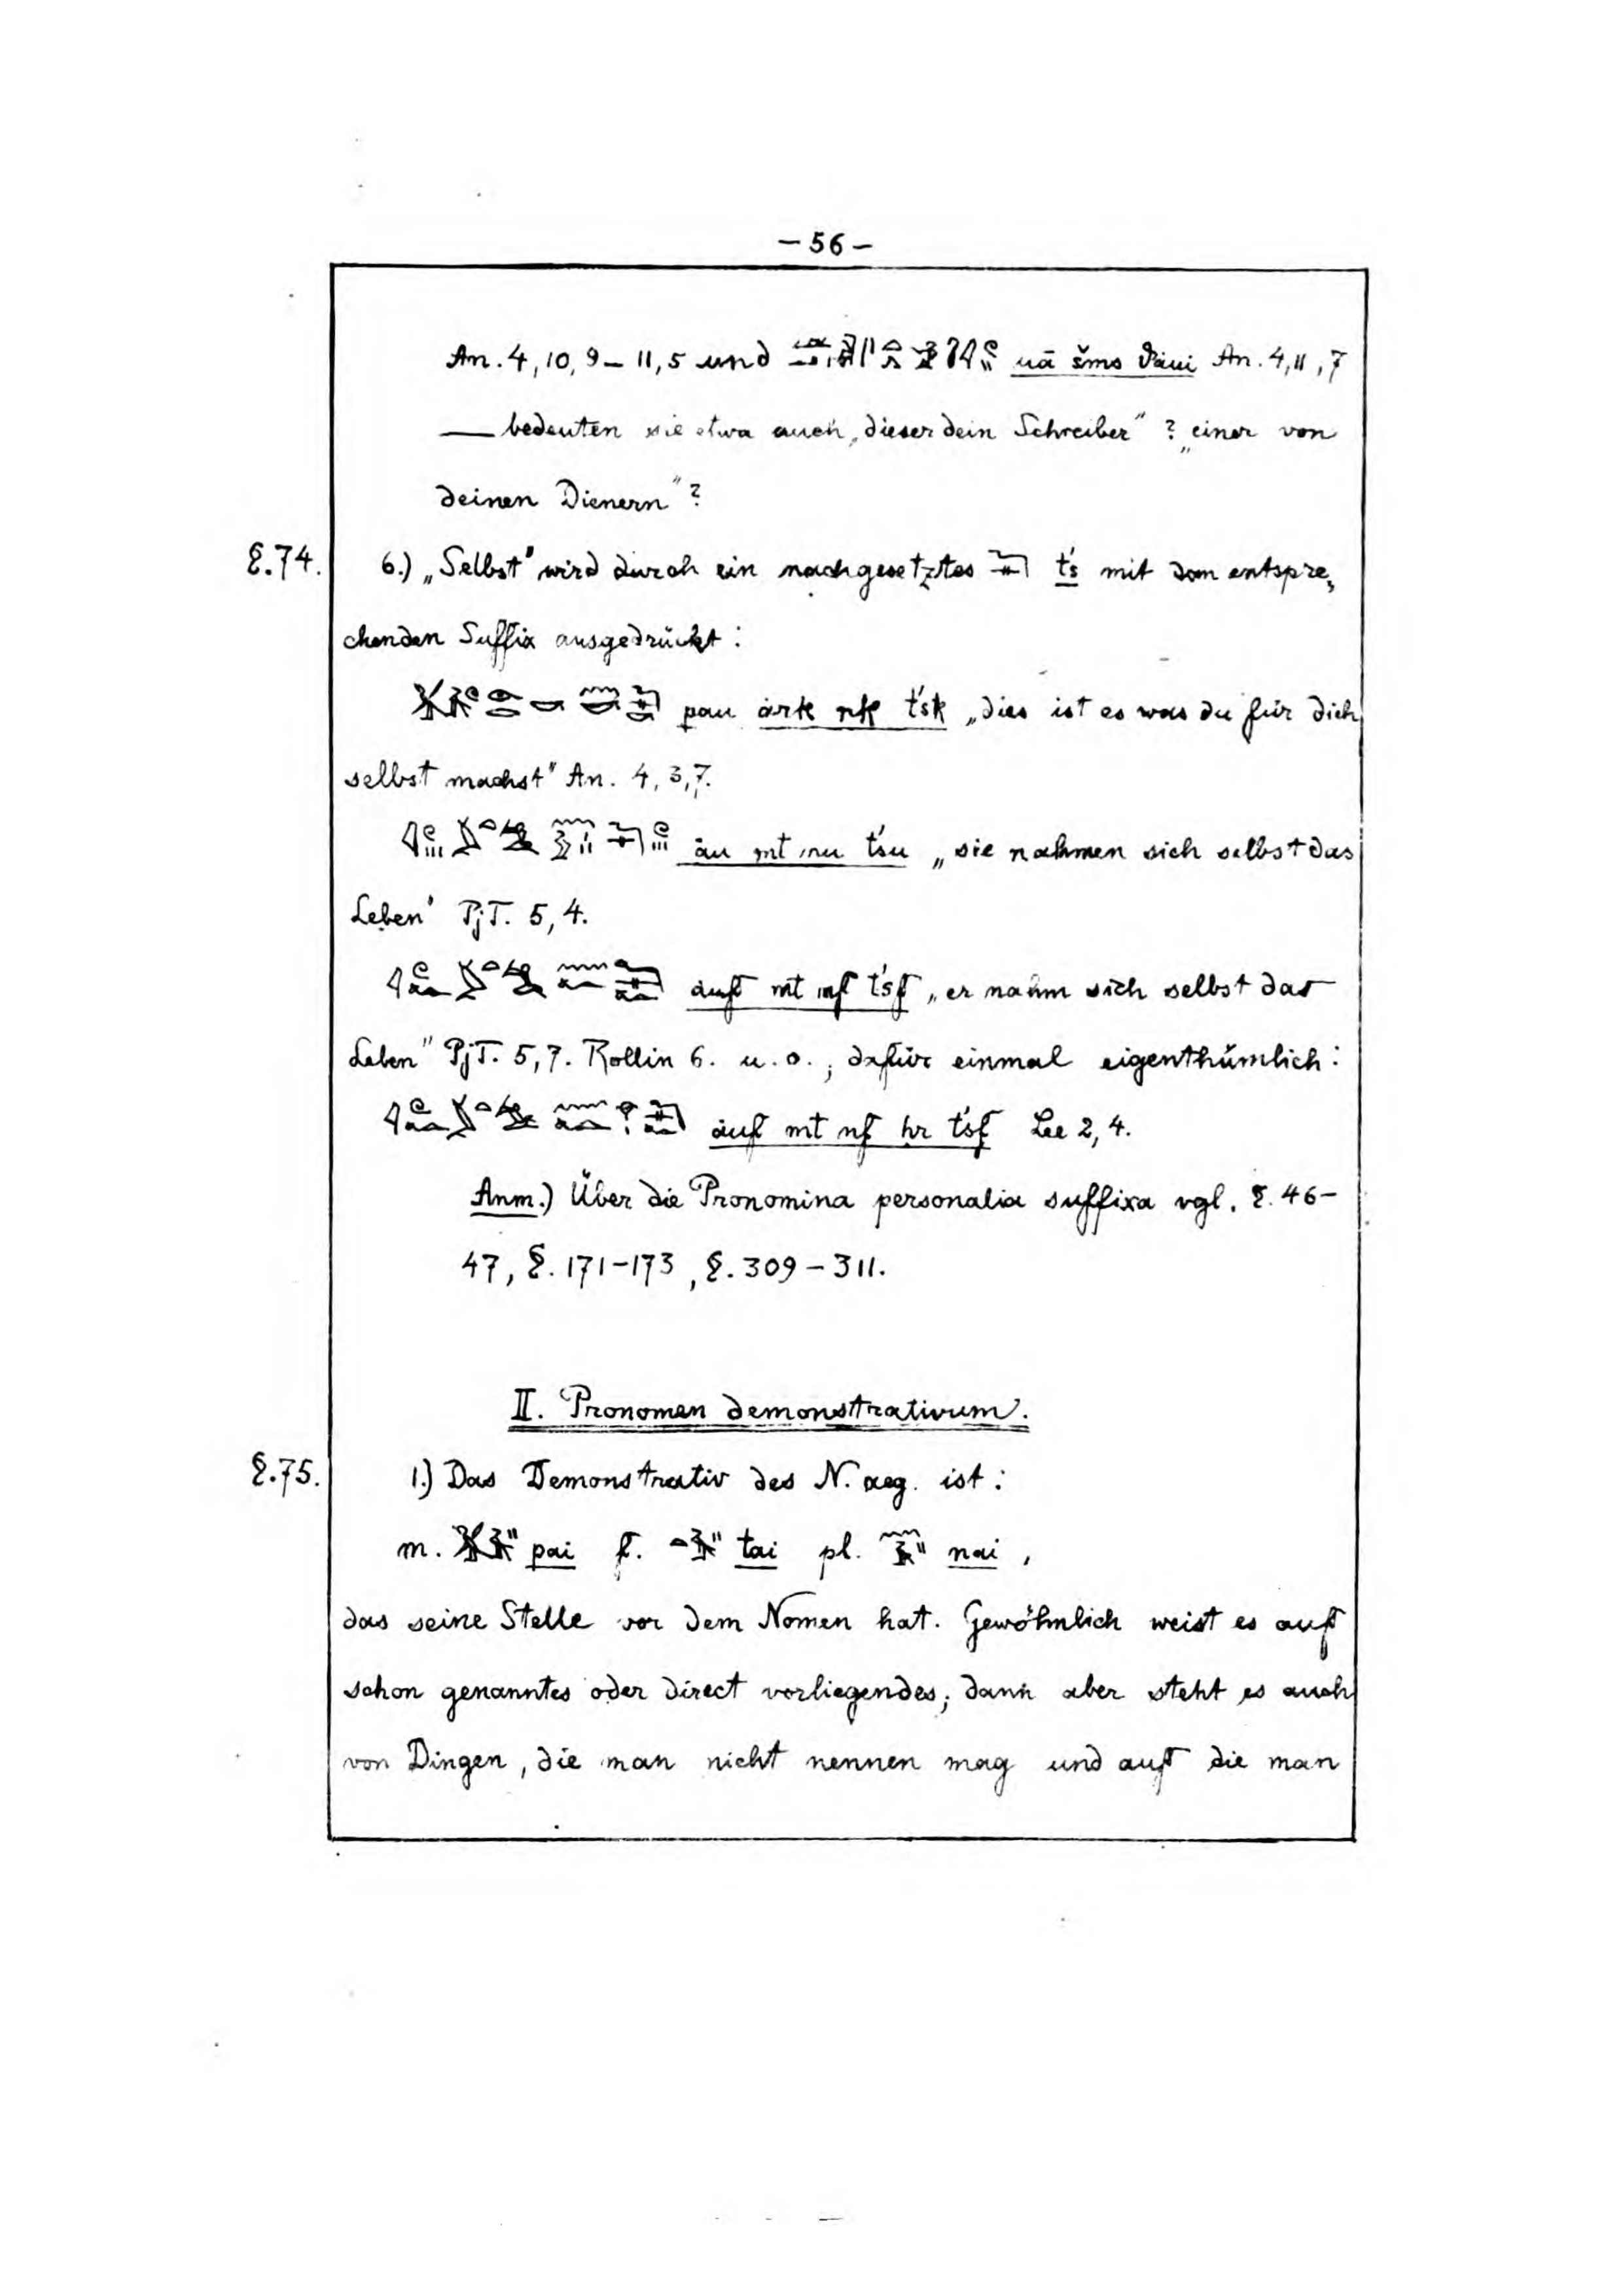 – 56 –
An. 4, 10, 9 – 11, 5 und uā šms An. 4, 11, 7
— bedeuten sie etwa auch „dieser dein Schreiber"? „einer von
deinen Dienern"?
§. 74. 6.) „Selbst" wird durch ein nachgesetztes t́s mit dem entspre„
chenden Suffix ausgedrückt:
pau ȧrk nk t́sk „dies ist es was du für dich
selbst machst" An. 4, 3, 7.
ȧu mt nu t́su „sie nahmen sich selbst das
Leben" PjT. 5, 4.
ȧuf mt nf t́sf „er nahm sich selbst das
Leben" PjT. 5, 7. Rollin 6. u. o.; dafür einmal eigenthümlich:
ȧuf mt nf hr t́sf Lee 2, 4.
Anm.) Über die Pronomina personalia suffixa vgl. §. 46–
47, §. 171–173, §. 309–311.
II. Pronomen demonstrativum.
§. 75. 1.) Das Demonstrativ des N. aeg. ist:
m. pai f. tai pl. nai,
das seine Stelle vor dem Nomen hat. Gewöhnlich weist es auf
schon genanntes oder direct vorliegendes; dann aber steht es auch
von Dingen, die man nicht nennen mag und auf die man